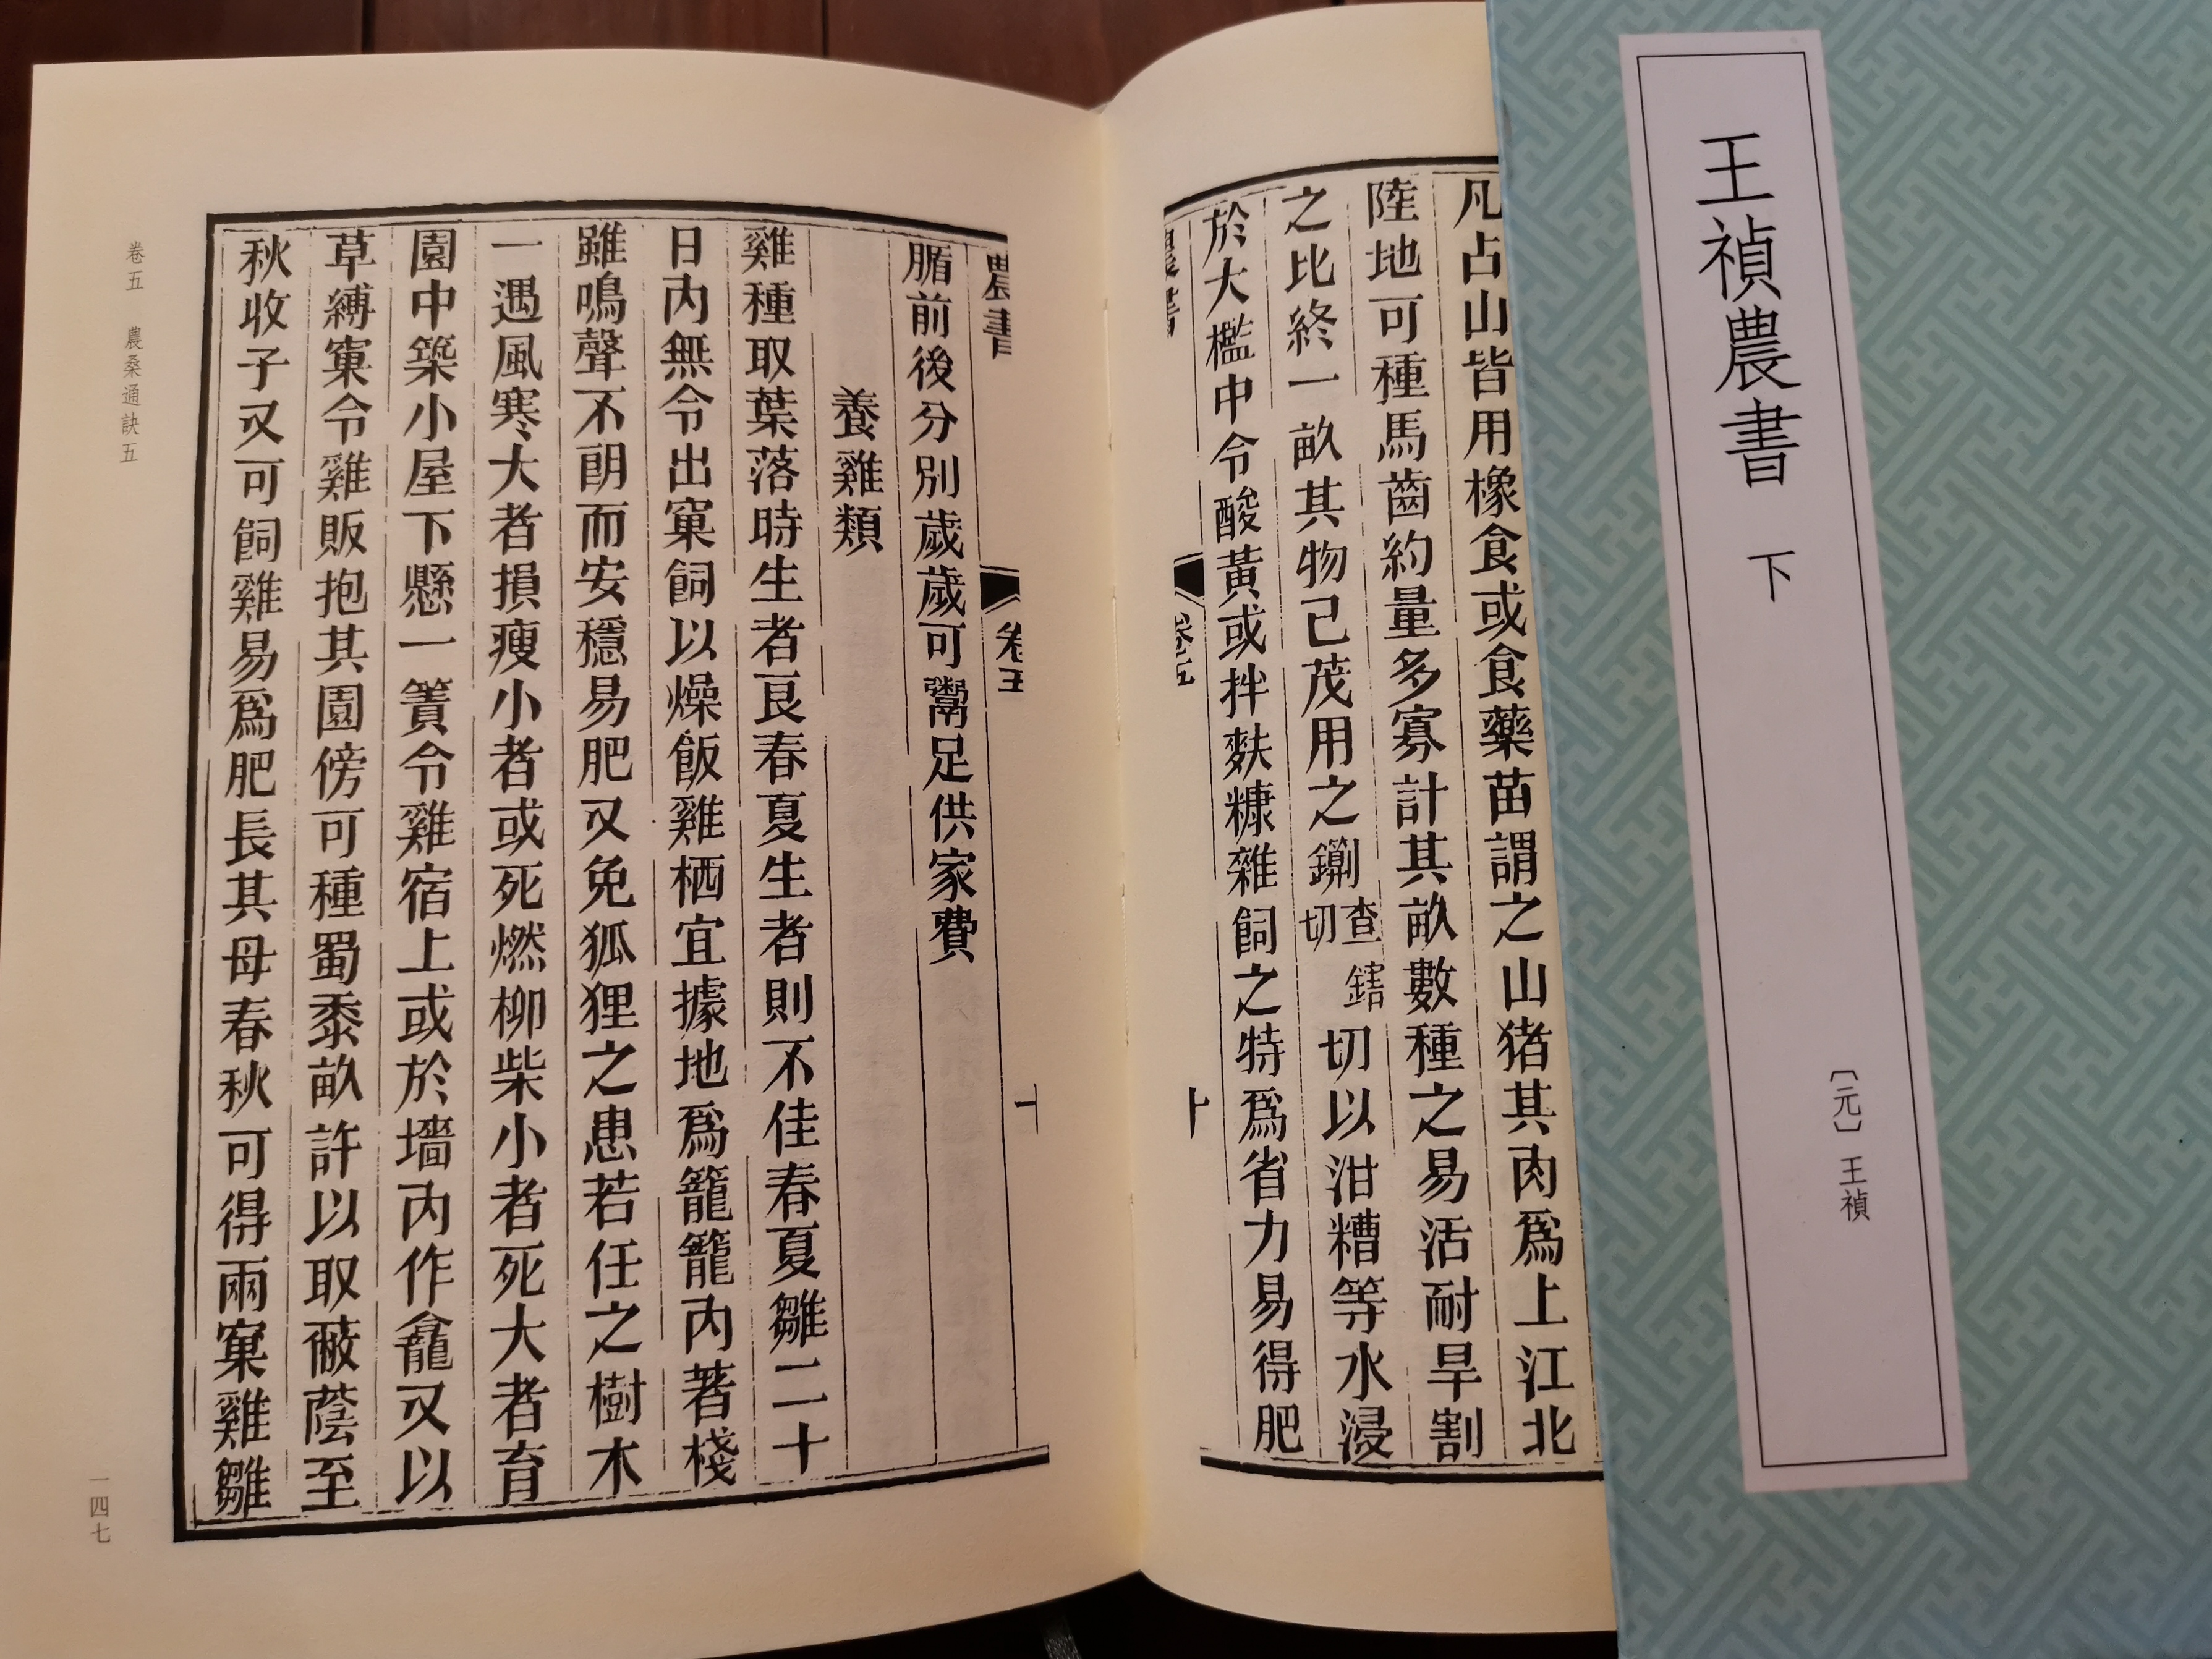 王禎農書 下
〔元〕王禎
凡占山皆用橡食或食藥苗謂之山猪其肉爲上江北
陸地可種馬齒約量多寡計其畝數種之易活耐旱割
之比終一畝其物已茂用之鍘查鎋切切以泔糟等水浸
於大檻中令酸黃或拌麩糠雜飼之特爲省力易得肥
農書 卷五 十
農書 卷五 一
腯前後分別歲歲可鬻足供家費
養雞類
雞種取葉落時生者良春夏生者則不佳春夏雛二十
日內無令出窠飼以燥飯雞栖宜據地爲籠籠內著棧
雖鳴聲不朗而安穩易肥又免狐狸之患若任之樹木
一遇風寒大者損瘦小者或死燃柳柴小者死大者盲
園中築小屋下懸一簀令雞宿上或於墻內作龕又以
草縛窠令雞販抱其園傍可種蜀黍畝許以取蔽蔭至
秋收子又可飼雞易爲肥長其母春秋可得兩窠雞雛
卷五 農桑通訣五
一四七